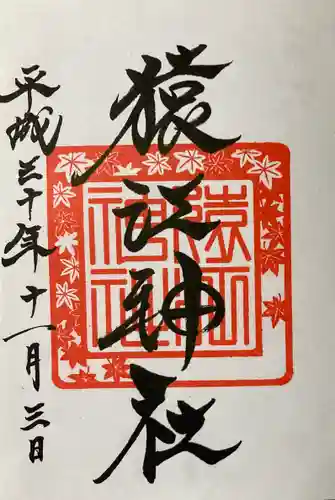 猿江神社
平成三十年十一月三日
猿江神社